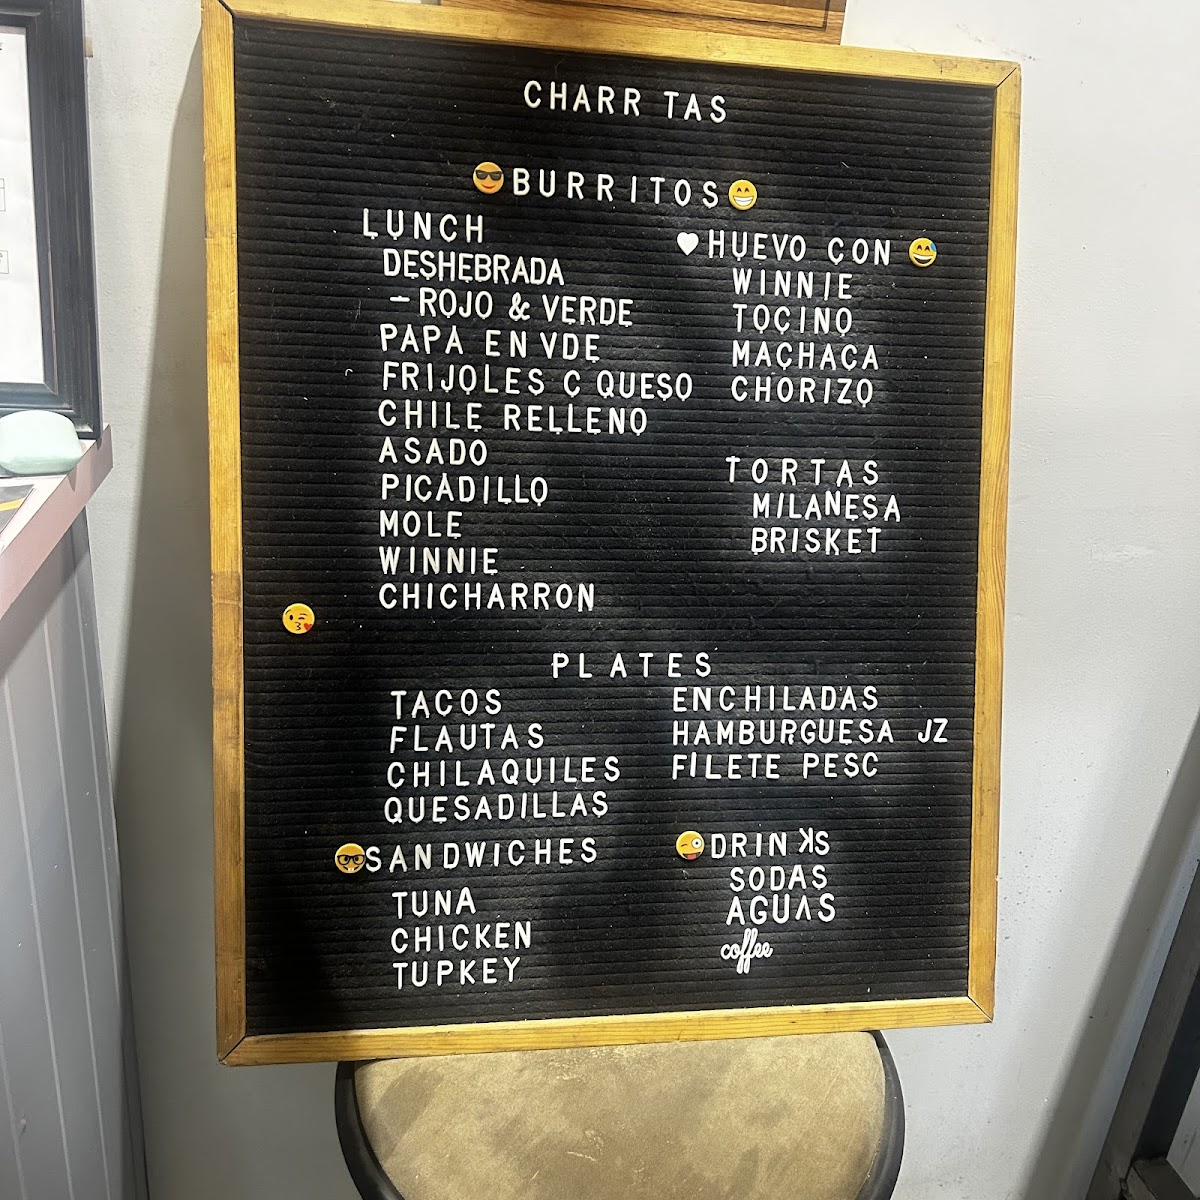 CHARR TAS
BURRITOS
LUNCH
DESHEBRADA
- ROJO & VERDE
PAPA EN VDE
FRIJOLES C QUESO
CHILE RELLENO
ASADO
PICADILLO
MOLE
WINNIE
CHICHARRON
HUEVO CON
WINNIE
TOCINO
MACHACA
CHORIZO
TORTAS
MILANESA
BRISKET
PLATES
TACOS
FLAUTAS
CHILAQUILES
QUESADILLAS
ENCHILADAS
HAMBURGUESA JZ
FILETE PESC
SANDWICHES
TUNA
CHICKEN
TUPKEY
DRINKS
SODAS
AGUAS
coffee